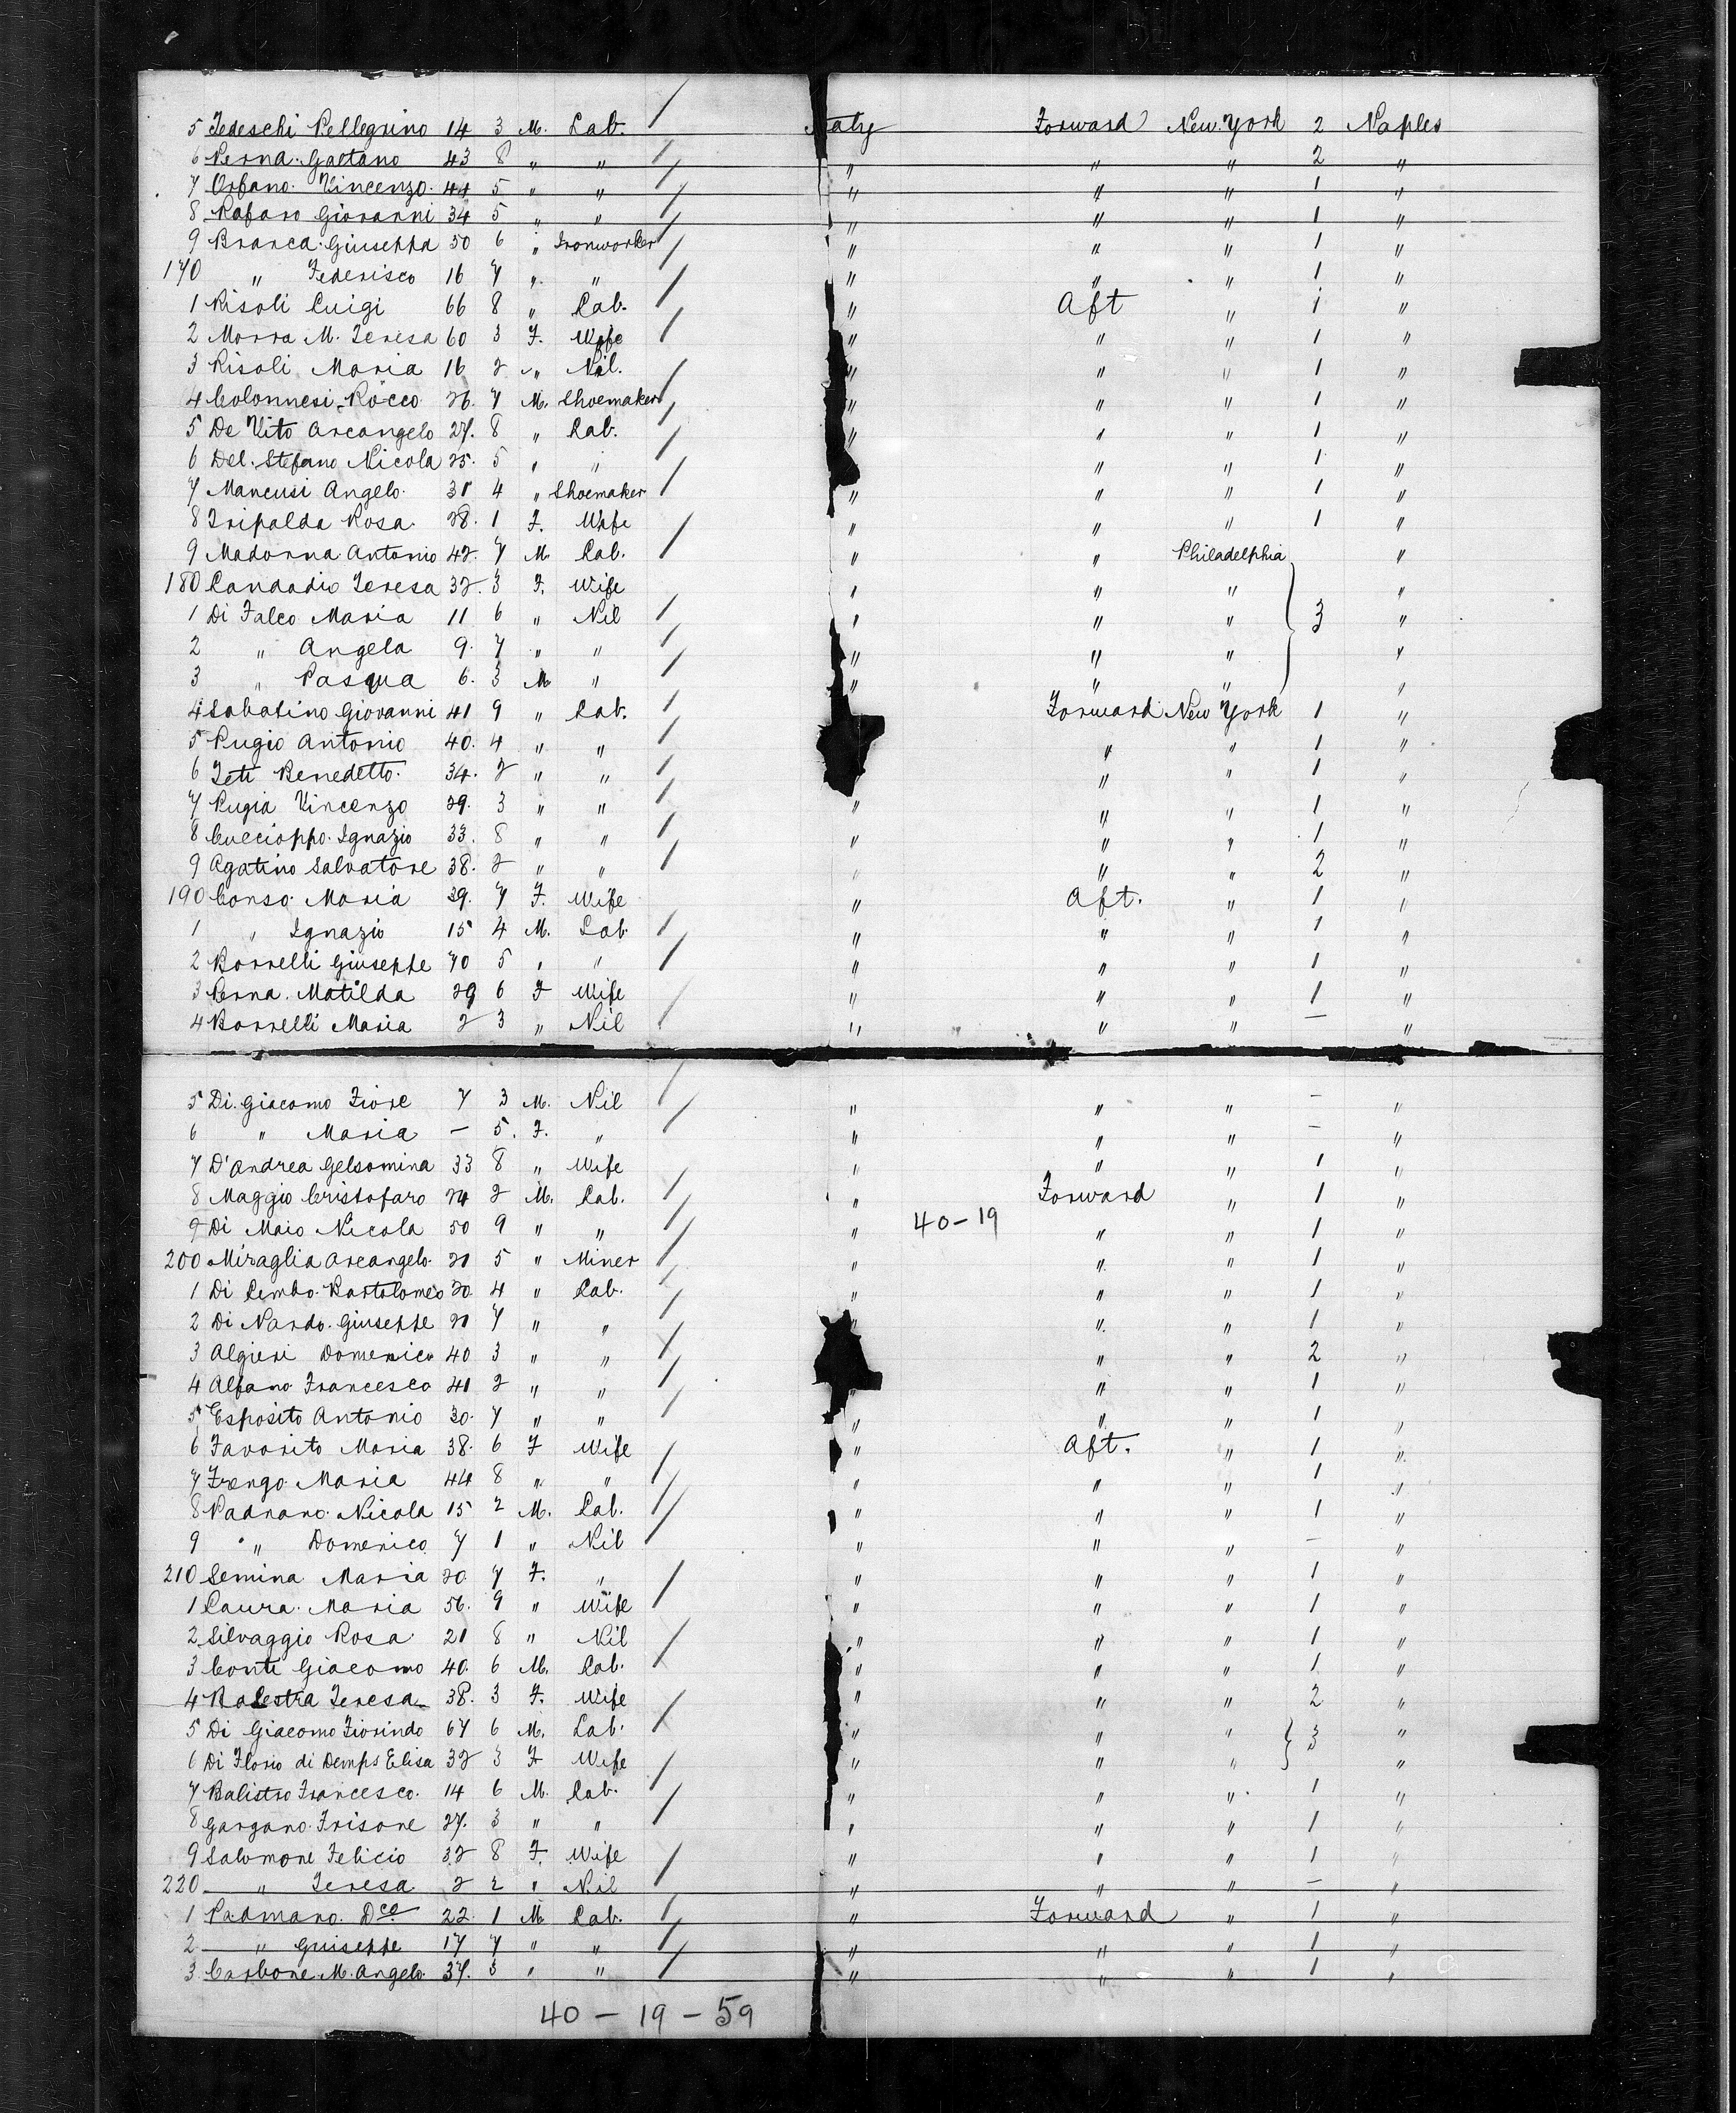 5 Tedeschi Pellegrino 14 3 M. Lab. Italy Forward New York 2 Naples
6 Perna Gaetano 43 8 " " " " " 2 "
7 Orfano Vincenzo 44 5 " " " " " 1 "
8 Rafaro Giovanni 34 5 " " " " " 1 "
9 Branca Giuseppa 50 6 " Ironworker " " " 1 "
170 " Federisco 16 7 " " " " " 1 "
1 Risoli Luigi 66 8 " Lab. " Aft " 1 "
2 Morra M. Teresa 60 3 F. Wife " " " 1 "
3 Risoli Maria 16 2 " Nil. " " " 1 "
4 Colonnesi Rocco 26. 7 M. Shoemaker " " " 1 "
5 De Vito Arcangelo 27. 8 " Lab. " " " 1 "
6 Del. Stefano Nicola 25. 5 " " " " " 1 "
7 Mancusi Angelo 31 4 " Shoemaker " " " 1 "
8 Tripalda Rosa 28. 1 F. Wife " " " 1 "
9 Madonna Antonio 42. 7 M Lab. " " Philadelphia "
180 Candadio Teresa 32. 3 F. Wife " " " "
1 Di Falco Maria 11 6 " Nil " " " 3 "
2 " Angela 9. 7 " " " " " "
3 " Pasqua 6. 3 M " " " " "
4 Sabatino Giovanni 41 9 " Lab. Forward New York 1 "
5 Pugio Antonio 40. 4 " " " " 1 "
6 Teti Benedetto 34. 2 " " " " 1 "
7 Pugia Vincenzo 29. 3 " " " " " 1 "
8 Cuccioppo Ignazio 33. 8 " " " " " 1 "
9 Agatino Salvatore 38. 2 " " " " " 2 "
190 Conso Maria 39. 7 F. Wife " Aft. " 1 "
1 " Ignazio 15 4 M. Lab " " " 1 "
2 Borrelli Giuseppe 70 5 " " " " " 1 "
3 Perna Matilda 29 6 F Wife " " " 1 "
4 Borrelli Maria 2 3 " Nil " " " — "
5 Di Giacomo Fiore 7 3 M. Nil " " " – "
6 " Maria – 5. F. " " " " – "
7 D'Andrea Gelsomina 33 8 " Wife " " " 1 "
8 Maggio Cristofaro 24 2 M. Lab. " Forward " 1 "
9 Di Maio Nicola 50 9 " " " 40-19 " " 1 "
200 Miraglia Arcangelo 21 5 " Miner " " " 1 "
1 Di Lembo Bartolomeo 20. 4 " Lab. " " " 1 "
2 Di Nardo Giuseppe 21 7 " " " " " 1 "
3 Algieri Domenico 40 3 " " " " 2 "
4 Alfano Francesco 41 2 " " " " 1 "
5 Esposito Antonio 30. 7 " " " " " 1 "
6 Favorito Maria 38. 6 F Wife " Aft. " 1 "
7 Maria 44 8 " " " " " 1 "
8 Padnano Nicola 15 2 M. Lab. " " " 1 "
9 " Domenico 7 1 " Nil " " " – "
210 Semina Maria 20. 7 F. " " " " 1 "
1 Laura Maria 56. 9 " Wife " " " 1 "
2 Silvaggio Rosa 21 8 " Nil " " " 1 "
3 Conti Giacomo 40. 6 M. Lab. " " " 1 "
4 Balestra Teresa 38. 3 F. Wife " " " 2 "
5 Di Giacomo Fiorindo 67 6 M. Lab. " " " 3 "
6 Di Florio di Demps Elisa 32 3 F Wife " " " "
7 Balistro Francesco 14 6 M. Lab. " " " 1 "
8 Gargano Frisone 27. 3 " " " " " 1 "
9 Salomone Felicio 32 8 F. Wife " " " 1 "
220 " Teresa 2 2 " Nil " " " – "
1 Padmano Dco 22. 1 M Lab. " Forward " 1 "
2 " Guiseppe 17 7 " " " " " 1 "
3 Carbone M. Angelo 37. 3 " " " " " 1 "
40 – 19 – 59